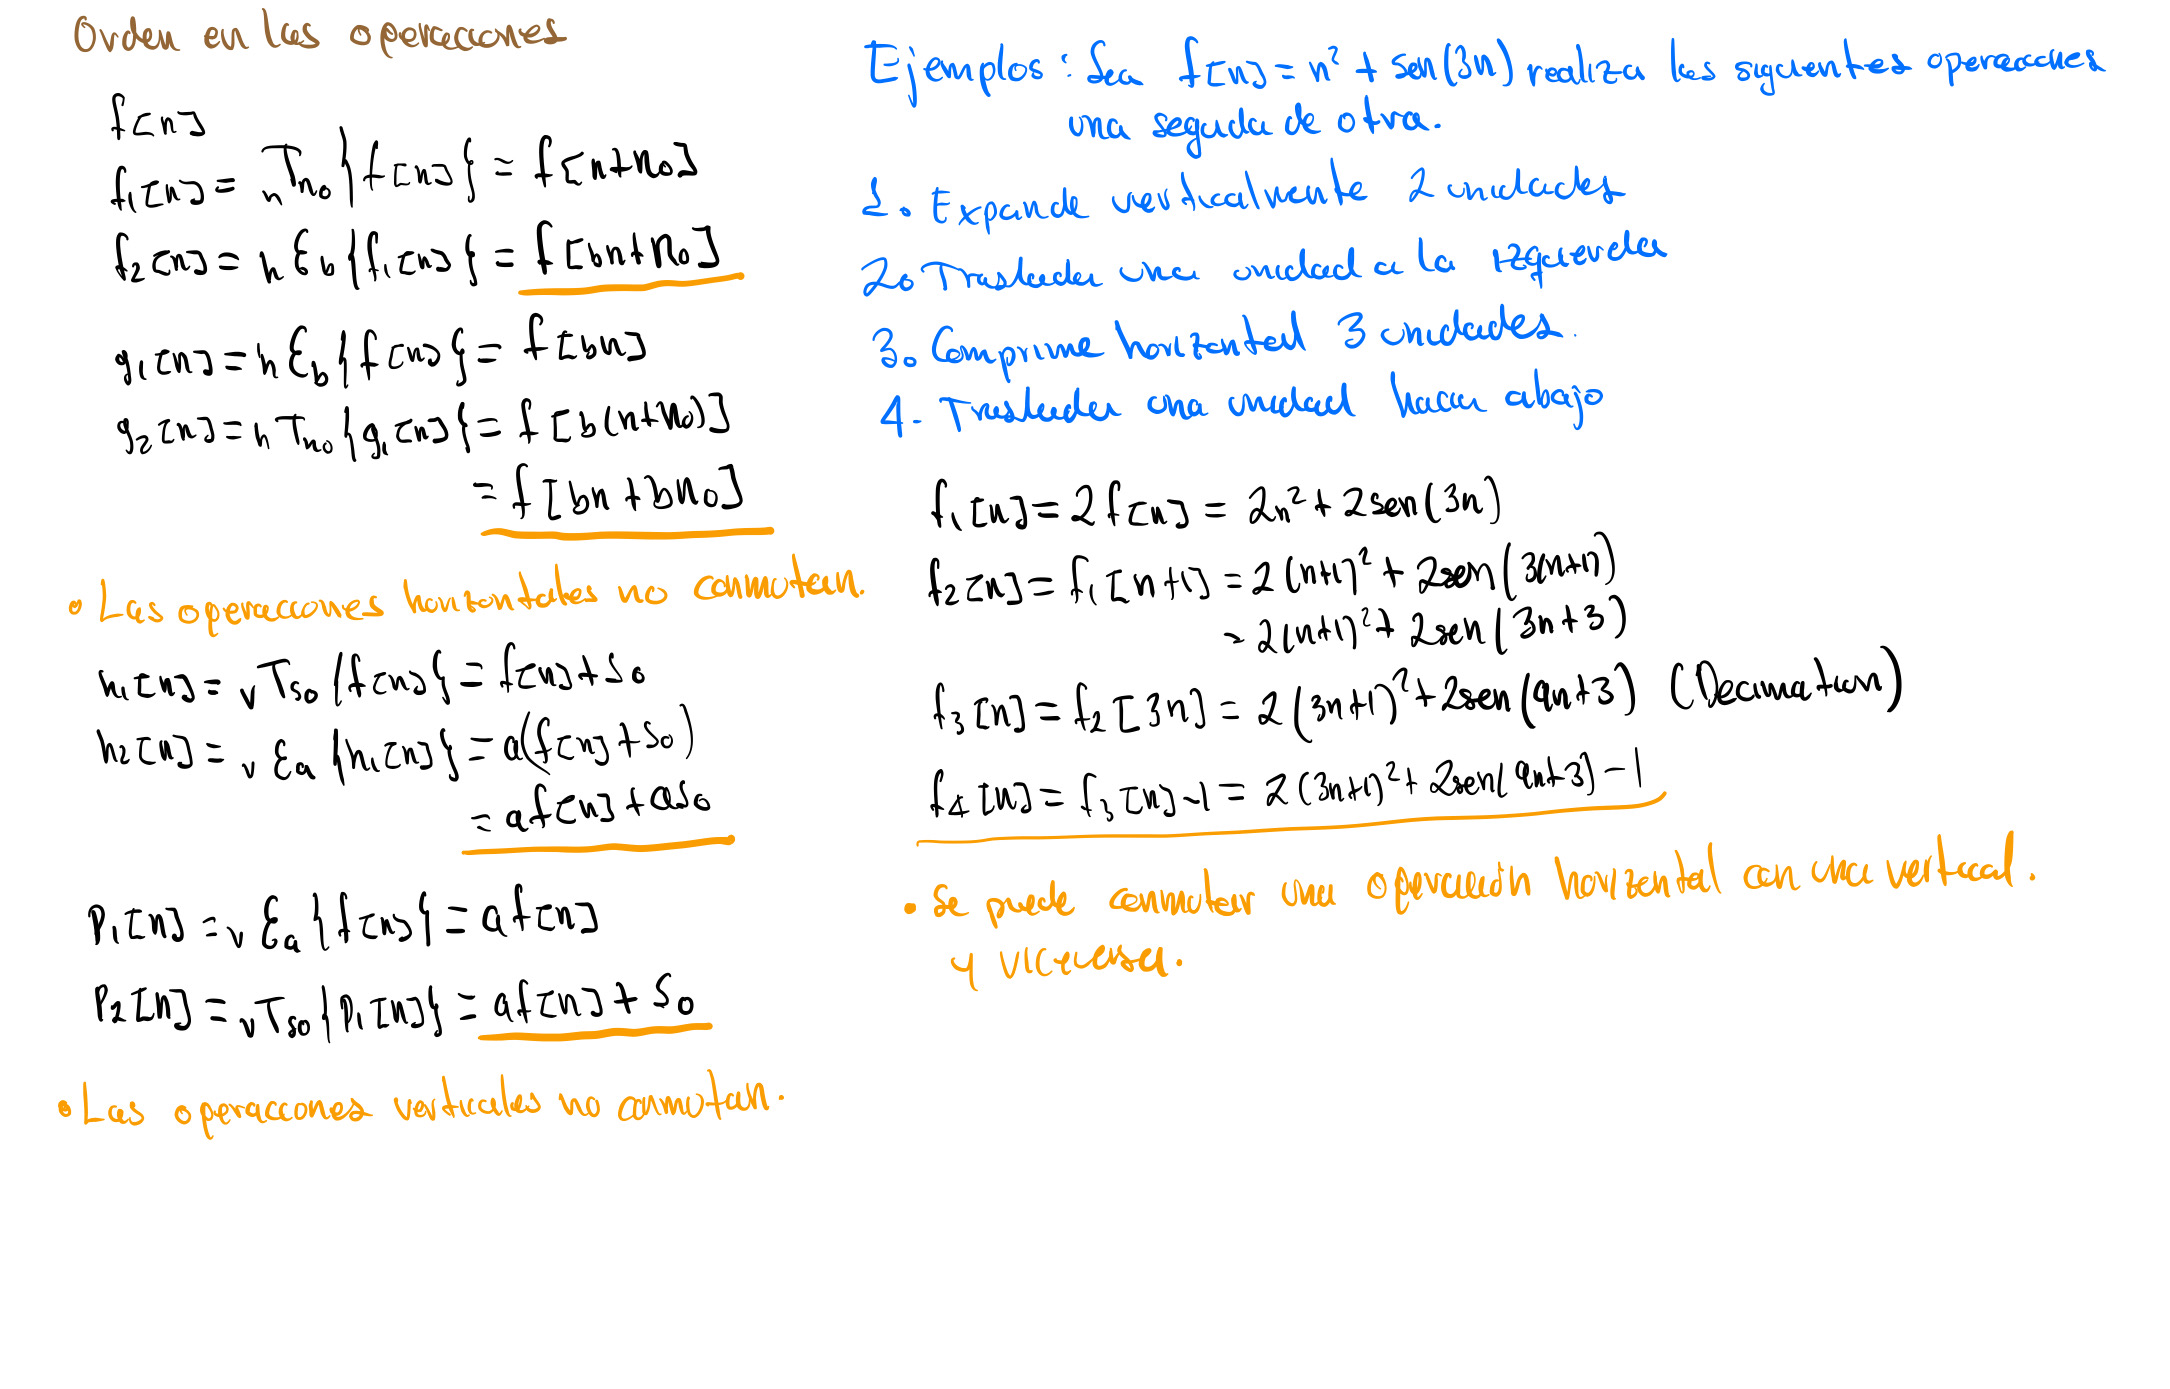 Orden en las operaciones
f[n]
f₁[n] = ₕTₙ₀{f[n]} = f[n+n₀]
f₂[n] = ₕℰb{f₁[n]} = f[bn+n₀]
g₁[n] = ₕℰb{f[n]} = f[bn]
g₂[n] = ₕTₙ₀{g₁[n]} = f[b(n+n₀)]
= f[bn+bn₀]
• Las operaciones horizontales no conmutan.
h₁[n] = ᵥTₛ₀{f[n]} = f[n]+s₀
h₂[n] = ᵥℰₐ{h₁[n]} = a(f[n]+s₀)
= af[n]+as₀
p₁[n] = ᵥℰₐ{f[n]} = af[n]
p₂[n] = ᵥTₛ₀{p₁[n]} = af[n]+s₀
• Las operaciones verticales no conmutan.
Ejemplos: Sea f[n] = n² + sen(3n) realiza las siguientes operaciones
una seguida de otra.
1. Expande verticalmente 2 unidades
2. Traslada una unidad a la izquierda
3. Comprime horizontal 3 unidades.
4. Traslada una unidad hacia abajo
f₁[n] = 2f[n] = 2n² + 2sen(3n)
f₂[n] = f₁[n+1] = 2(n+1)² + 2sen(3(n+1))
= 2(n+1)² + 2sen(3n+3)
f₃[n] = f₂[3n] = 2(3n+1)² + 2sen(9n+3) (Decimation)
f₄[n] = f₃[n]-1 = 2(3n+1)² + 2sen(9n+3) - 1
• Se puede conmutar una operación horizontal con una vertical.
y viceversa.